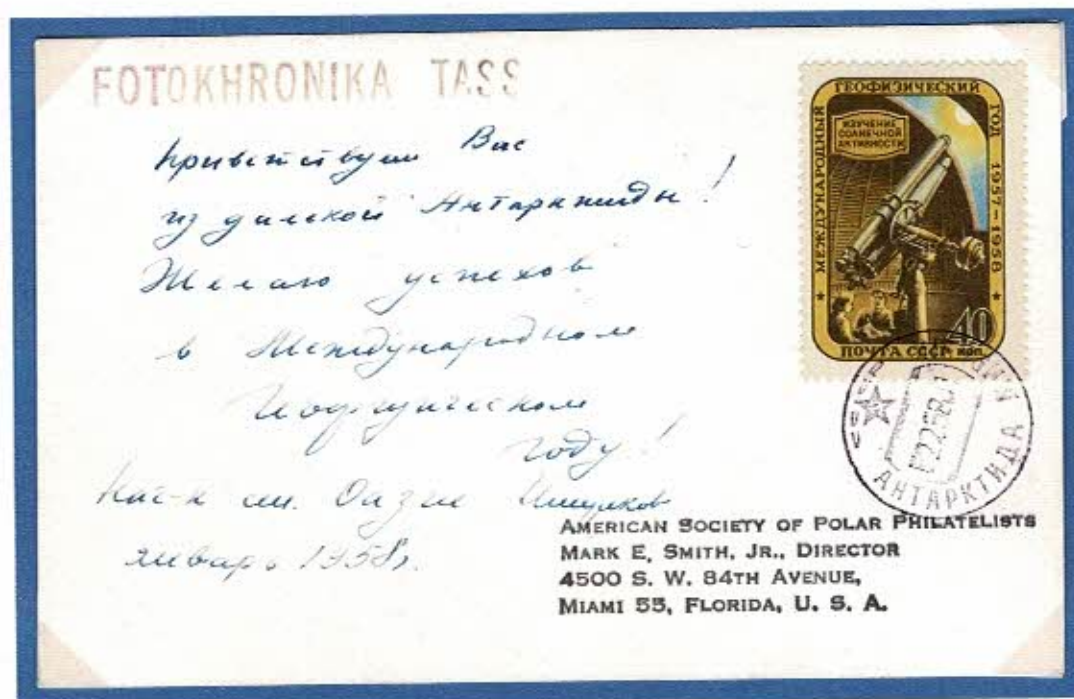 FOTOKHRONIKA TASS
Приветствуем Вас
из далекой Антарктиды!
Желаю успехов
в Международном
Геофизическом
году!
Нач-к ст. Оазис
январь 1958г.
МЕЖДУНАРОДНЫЙ ГЕОФИЗИЧЕСКИЙ ГОД 1957-1958
ИЗУЧЕНИЕ
СОЛНЕЧНОЙ
АКТИВНОСТИ
40
ПОЧТА СССР КОП.
АНТАРКТИДА
AMERICAN SOCIETY OF POLAR PHILATELISTS
MARK E. SMITH, JR., DIRECTOR
4500 S. W. 84TH AVENUE,
MIAMI 55, FLORIDA, U. S. A.